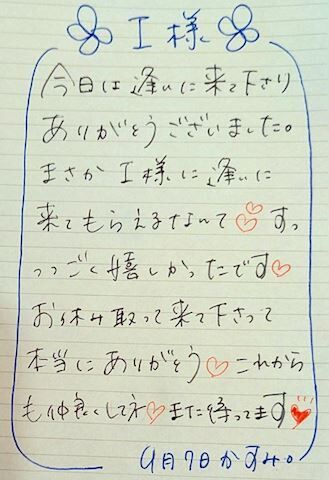 I様
今日は逢いに来て下さり
ありがとうございました。
まさかI様に逢いに
来てもらえるなんて♡♡すっ
っっごく嬉しかったです♡
お休み取って来て下さって
本当にありがとう♡これから
も仲良くしてネ♡また待ってます♥
9月7日かすみ。